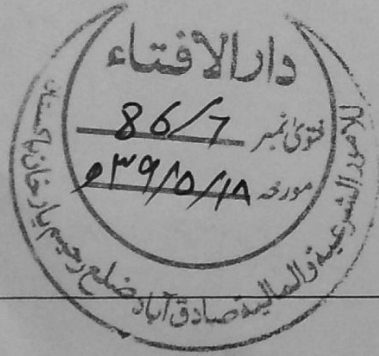 دارالافتاء
فتویٰ نمبر 86/7
مورخہ ۳۹/۵/۱۸ھ
للامور الشرعیة والمالیة صادق آباد ضلع رحیم یار خان